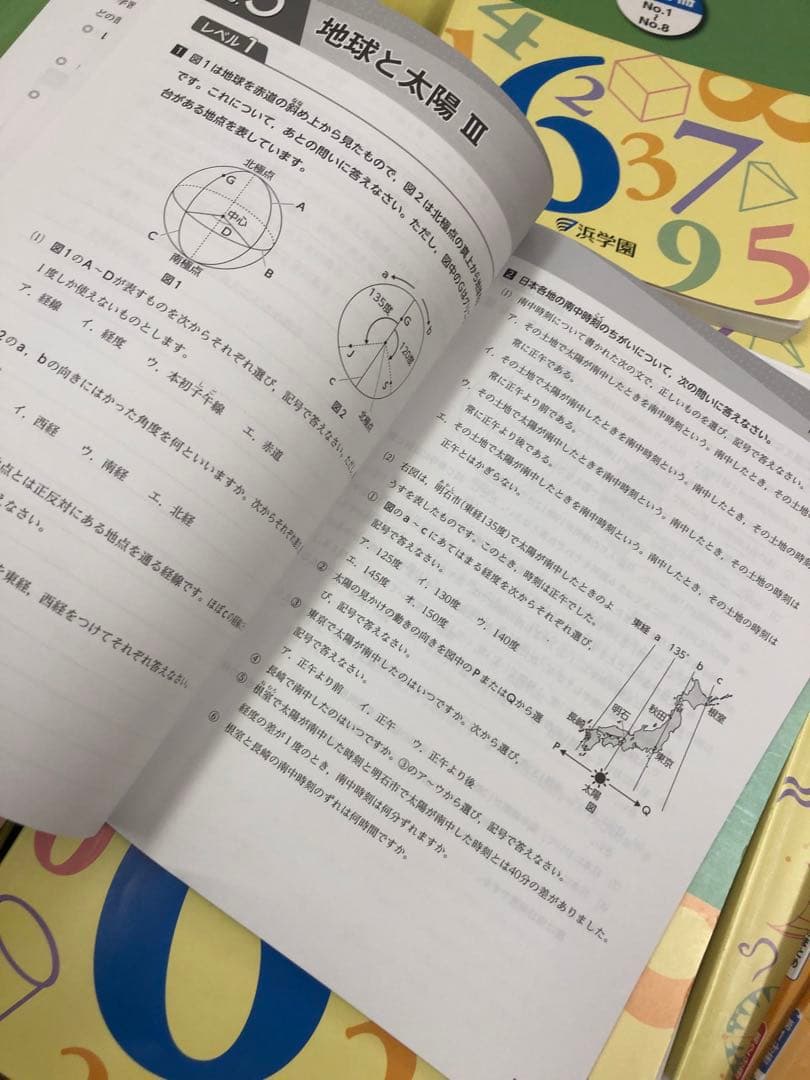 レベル1
地球と太陽 Ⅲ
1 図1は地球を赤道の斜め上から見たもので，図2は北極点の真上から地球
です。これについて，あとの問いに答えなさい。ただし，図中のGは
台がある地点を表しています。
北極点
G
A
中心
D
C
B
南極点
図1
a
135度
b
G
120度
J
S
C
北極点
図2
(1) 図1のA～Dが表すものを次からそれぞれ選び，記号で答えなさい。ただし，
1度しか使えないものとします。
ア．経線 イ．経度 ウ．本初子午線 エ．赤道
2のa，bの向きにはかった角度を何といいますか。次からそれぞれ
イ．西経 ウ．南経 エ．北経
点とは正反対にある地点を通る経線です。ほぼ
えなさい。
東経，西経をつけてそれぞれ答えなさい
2 日本各地の南中時刻のちがいについて，次の問いに答えなさい。
(1) 南中時刻について書かれた次の文で，正しいものを選び，記号で答えなさい。
ア．その土地で太陽が南中したときを南中時刻という。南中したとき，その土地の
常に正午である。
イ．その土地で太陽が南中したときを南中時刻という。南中したとき，その土地の時刻
常に正午より前である。
ウ．その土地で太陽が南中したときを南中時刻という。南中したとき，その土地の時刻は
常に正午より後である。
エ．その土地で太陽が南中したときを南中時刻という。南中したとき，その土地の時刻は
正午とはかぎらない。
(2) 右図は，明石市(東経135度)で太陽が南中したときのよ
うすを表したものです。このとき，時刻は正午でした。
① 図のa～cにあてはまる経度を次からそれぞれ選び，
記号で答えなさい。
ア．125度 イ．130度 ウ．140度
エ．145度 オ．150度
② 太陽の見かけの動きの向きを図中のPまたはQから選
び，記号で答えなさい。
③ 東京で太陽が南中したのはいつですか。次から選び，
記号で答えなさい。
ア．正午より前 イ．正午 ウ．正午より後
④ 長崎で南中したのはいつですか。③のア～ウから選び，記号で答えなさい。
⑤ 根室で太陽が南中した時刻と明石市で太陽が南中した時刻とは40分の差がありました。
経度の差が1度のとき，南中時刻は何分ずれますか。
⑥ 根室と長崎の南中時刻のずれは何時間ですか。
東経 a 135° b c
長崎
明石
秋田
根室
東京
P
太陽
Q
図
No.1
～
No.8
4
6
2
8
3
7
9
5
浜学園